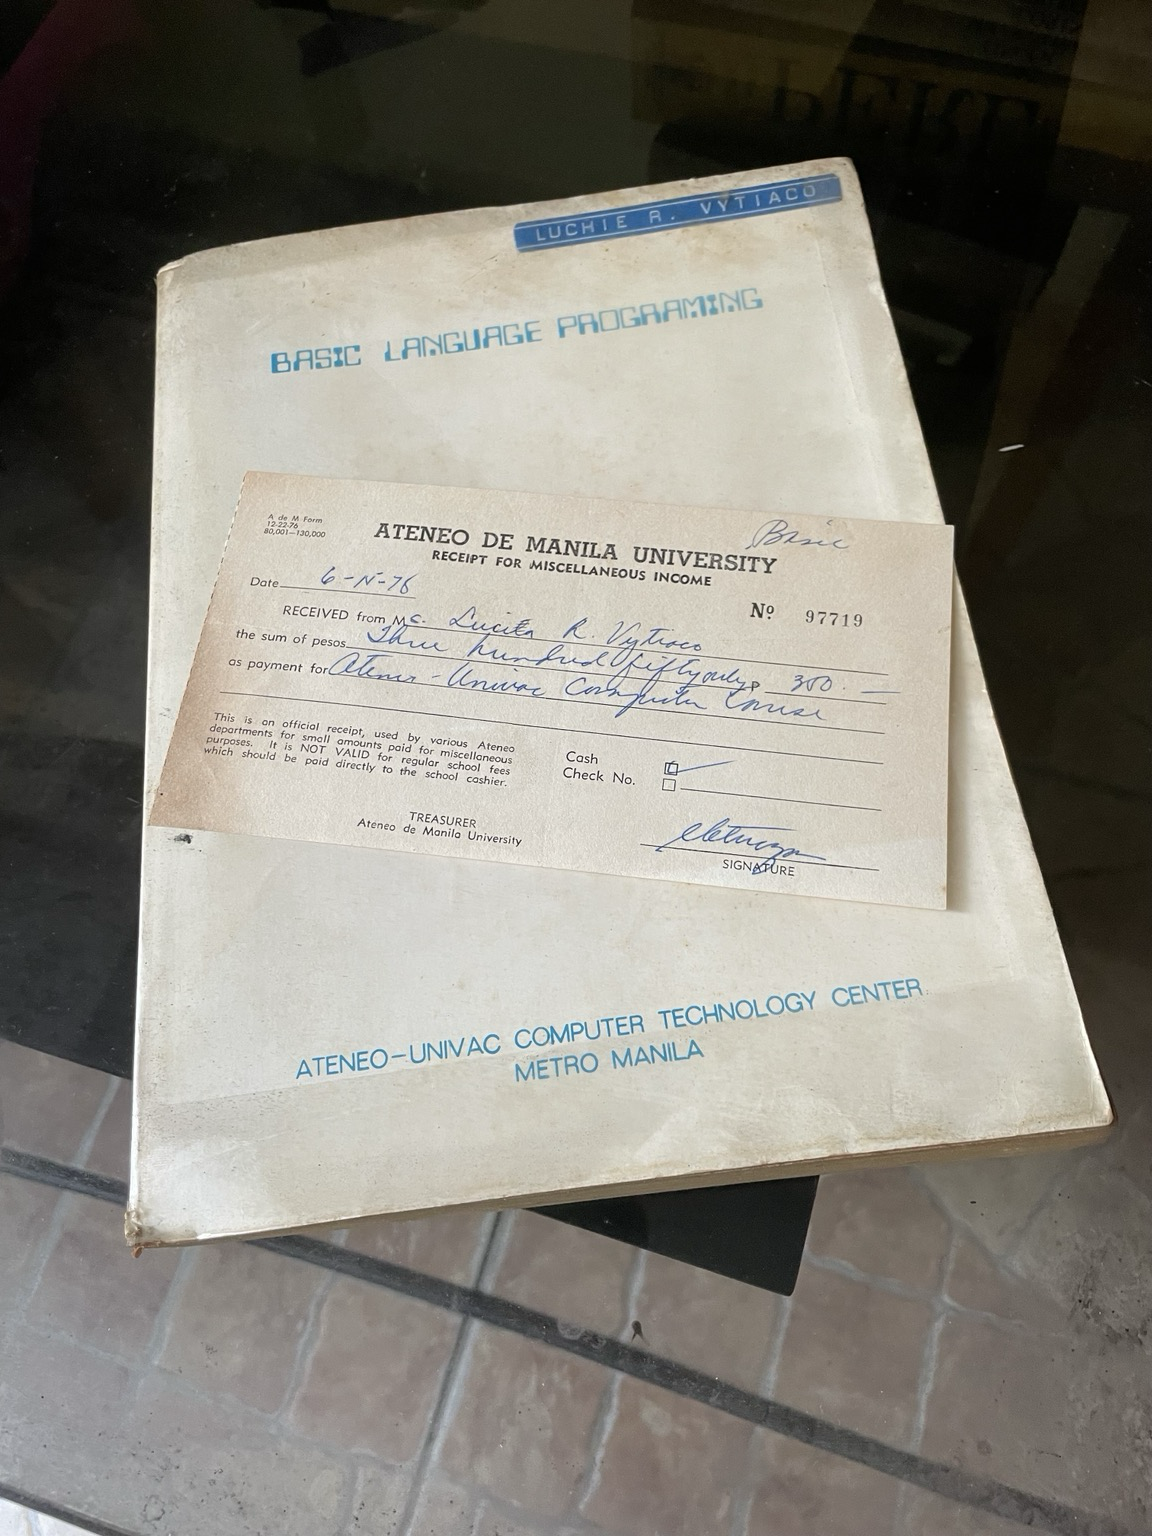 LUCHIE R. VYTIACO
BASIC LANGUAGE PROGRAMING
A de M Form
12-22-76
80,001—130,000
ATENEO DE MANILA UNIVERSITY
RECEIPT FOR MISCELLANEOUS INCOME
Basic
Date
Nº 97719
RECEIVED from Ms. Lucita R. Vytiaco
the sum of pesos Three hundred fifty only P 350.—
as payment for Ateneo-Univac Computer Course
This is an official receipt, used by various Ateneo
departments for small amounts paid for miscellaneous
purposes. It is NOT VALID for regular school fees
which should be paid directly to the school cashier.
Cash
Check No.
TREASURER
Ateneo de Manila University
SIGNATURE
ATENEO-UNIVAC COMPUTER TECHNOLOGY CENTER
METRO MANILA